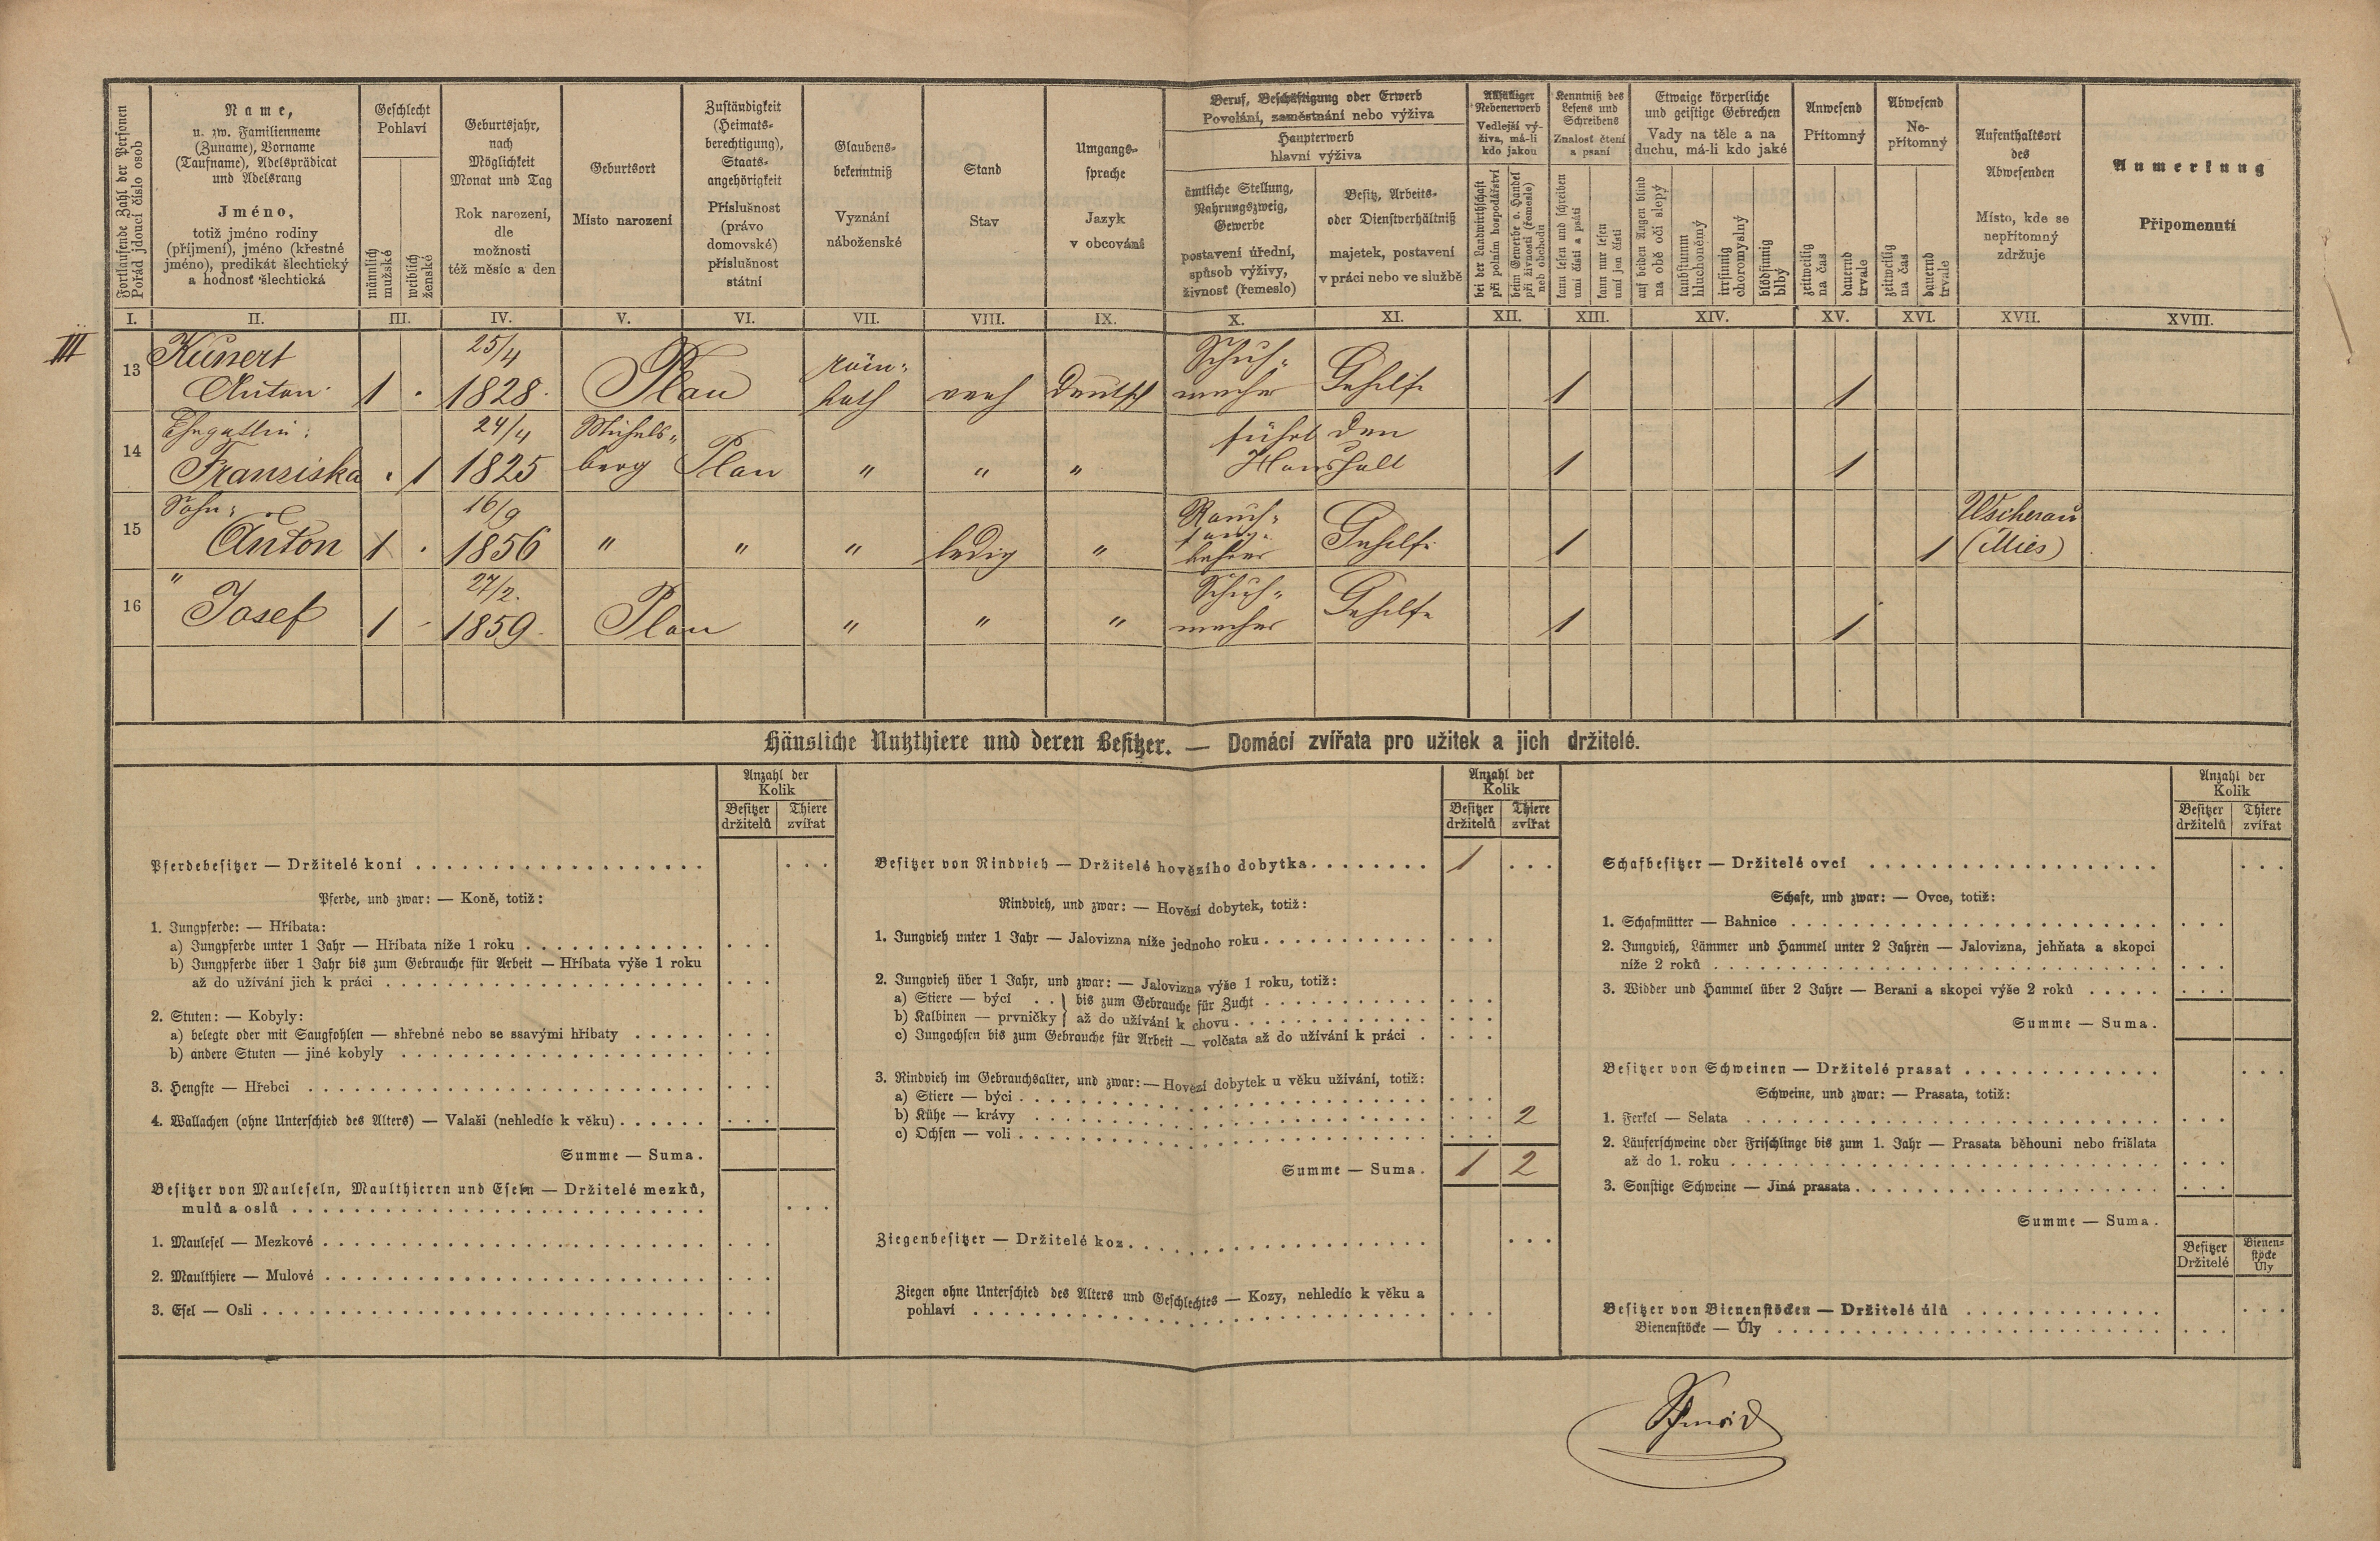 Fortlaufende Zahl der Personen
Pořád jdoucí číslo osob
Name,
u. zw. Familienname
(Zuname), Vorname
(Taufname), Adelsprädicat
und Adelsrang
Jméno,
totiž jméno rodiny
(příjmení), jméno (křestné
jméno), predikát šlechtický
a hodnosť šlechtická
Geschlecht
Pohlaví
männlich
mužské
weiblich
ženské
Geburtsjahr,
nach
Möglichkeit
Monat und Tag
Rok narození,
dle
možnosti
též měsíc a den
Geburtsort
Místo narození
Zuständigkeit
(Heimats-
berechtigung),
Staats-
angehörigkeit
Příslušnost
(právo
domovské)
příslušnost
státní
Glaubens-
bekenntniß
Vyznání
náboženské
Stand
Stav
Umgangs-
sprache
Jazyk
v obcování
Beruf, Beschäftigung oder Erwerb
Povolání, zaměstnání nebo výživa
Haupterwerb
hlavní výživa
ämtliche Stellung,
Nahrungszweig,
Gewerbe
postavení úřední,
způsob výživy,
živnosť (řemeslo)
Besitz, Arbeits-
oder Dienstverhältniß
majetek, postavení
v práci nebo ve službě
Allfälliger
Nebenerwerb
Vedlejší vý-
živa, má-li
kdo jakou
bei der Landwirthschaft
při polním hospodářství
beim Gewerbe o. Handel
při živnosti (řemesle)
neb obchodu
Kenntniß des
Lesens und
Schreibens
Znalosť čtení
a psaní
kann lesen und schreiben
umí čísti a psáti
kann nur lesen
umí jen čísti
Etwaige körperliche
und geistige Gebrechen
Vady na těle a na
duchu, má-li kdo jaké
auf beiden Augen blind
na obě oči slepý
taubstumm
hluchoněmý
irrsinnig
choromyslný
blödsinnig
blbý
Anwesend
Přítomný
zeitweilig
na čas
dauernd
trvale
Abwesend
Ne-
přítomný
zeitweilig
na čas
dauernd
trvale
Aufenthaltsort
des
Abwesenden
Místo, kde se
nepřítomný
zdržuje
Anmerkung
Připomenutí
I. II. III. IV. V. VI. VII. VIII. IX. X. XI. XII. XIII. XIV. XV. XVI. XVII. XVIII.
III
13 Kunert 25/4 röm- Schuh-
Anton 1 . 1828. Plan kath verh Deutsch macher Gehilfe 1 1
14 Ehegattin: 24/4 Michels- führt den
Franziska . 1 1825 berg Plan " " " Haushalt 1 1
15 Sohn: 16/9 Rauch- Wscherau
Anton 1 . 1856 " " " ledig " fang- kehrer Gehilfe 1 1 (Mies)
16 " 27/2. Schuh-
Josef 1 - 1859. Plan " " " macher Gehilfe 1 1
Häusliche Nutzthiere und deren Besitzer. — Domácí zvířata pro užitek a jich držitelé.
Anzahl der
Kolik
Besitzer Thiere
držitelů zvířat
Pferdebesitzer — Držitelé koní
Pferde, und zwar: — Koně, totiž:
1. Jungpferde: — Hříbata:
a) Jungpferde unter 1 Jahr — Hříbata níže 1 roku
b) Jungpferde über 1 Jahr bis zum Gebrauche für Arbeit — Hříbata výše 1 roku
až do užívání jich k práci
2. Stuten: — Kobyly:
a) belegte oder mit Saugfohlen — shřebné nebo se ssavými hříbaty
b) andere Stuten — jiné kobyly
3. Hengste — Hřebci
4. Wallachen (ohne Unterschied des Alters) — Valaši (nehledíc k věku)
Summe — Suma.
Besitzer von Mauleseln, Maulthieren und Eseln — Držitelé mezků,
mulů a oslů
1. Maulesel — Mezkové
2. Maulthiere — Mulové
3. Esel — Osli
Anzahl der
Kolik
Besitzer Thiere
držitelů zvířat
Besitzer von Rindvieh — Držitelé hovězího dobytka 1
Rindvieh, und zwar: — Hovězí dobytek, totiž:
1. Jungvieh unter 1 Jahr — Jalovizna níže jednoho roku
2. Jungvieh über 1 Jahr, und zwar: — Jalovizna výše 1 roku, totiž:
a) Stiere — býci . . } bis zum Gebrauche für Zucht
b) Kalbinen — prvničky } až do užívání k chovu
c) Jungochsen bis zum Gebrauche für Arbeit — volčata až do užívání k práci
3. Rindvieh im Gebrauchsalter, und zwar: — Hovězí dobytek u věku užívání, totiž:
a) Stiere — býci
b) Kühe — krávy 2
c) Ochsen — voli
Summe — Suma. 1 2
Ziegenbesitzer — Držitelé koz
Ziegen ohne Unterschied des Alters und Geschlechtes — Kozy, nehledíc k věku a
pohlaví
Anzahl der
Kolik
Besitzer Thiere
držitelů zvířat
Schafbesitzer — Držitelé ovcí
Schafe, und zwar: — Ovce, totiž:
1. Schafmütter — Bahnice
2. Jungvieh, Lämmer und Hammel unter 2 Jahren — Jalovizna, jehňata a skopci
níže 2 roků
3. Widder und Hammel über 2 Jahre — Berani a skopci výše 2 roků
Summe — Suma.
Besitzer von Schweinen — Držitelé prasat
Schweine, und zwar: — Prasata, totiž:
1. Ferkel — Selata
2. Läuferschweine oder Frischlinge bis zum 1. Jahr — Prasata běhouni nebo frišlata
až do 1. roku
3. Sonstige Schweine — Jiná prasata
Summe — Suma.
Besitzer Bienen-
stöcke
Držitelé Úly
Besitzer von Bienenstöcken — Držitelé úlů
Bienenstöcke — Úly
Schmid